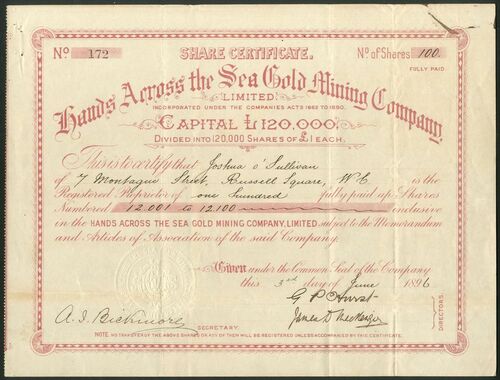 SHARE CERTIFICATE.
No. 172
No. of Shares 100
FULLY PAID
Hands Across the Sea Gold Mining Company,
LIMITED.
INCORPORATED UNDER THE COMPANIES ACTS 1862 TO 1890.
CAPITAL £120,000.
DIVIDED INTO 120,000 SHARES OF £1 EACH.
This is to certify that Joshua O'Sullivan
of 7 Montague Street, Russell Square, W.C is the
Registered Proprietor of one hundred fully paid up Shares
Numbered 12,001 to 12,100 inclusive
in the HANDS ACROSS THE SEA GOLD MINING COMPANY, LIMITED, subject to the Memorandum
and Articles of Association of the said Company.
Given under the Common Seal of the Company
this 3rd day of June 1896
G P Hurst
James D
DIRECTORS.
A. J. Bickmore
SECRETARY.
NOTE. NO TRANSFER OF THE ABOVE SHARES OR ANY OF THEM WILL BE REGISTERED UNLESS ACCOMPANIED BY THIS CERTIFICATE.